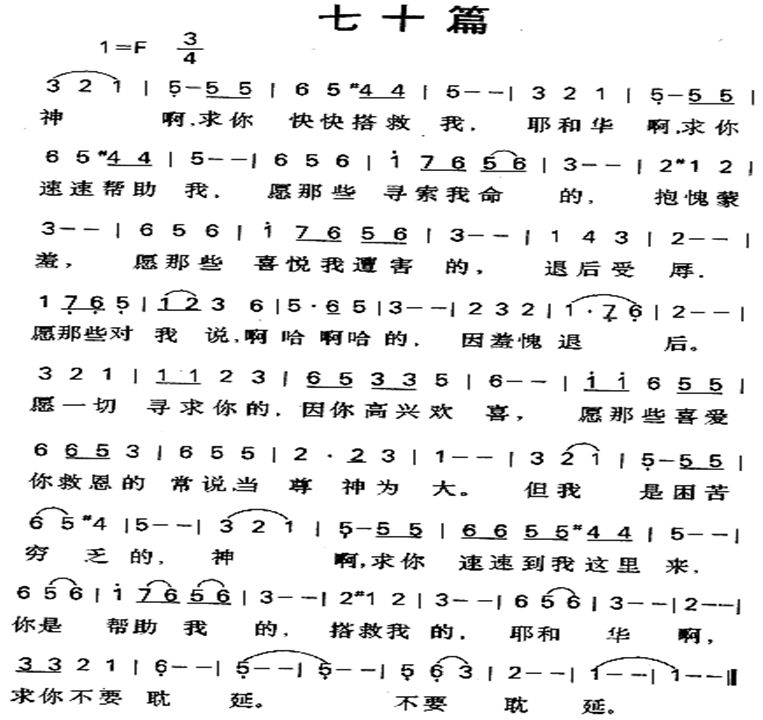 七十篇
1=F 3/4
3 2 1 | 5̣ - 5 5 | 6 5 #4 4 | 5 - - | 3 2 1 | 5̣ - 5 5 |
神 啊,求你 快快搭救 我, 耶和华 啊,求你
6 5 #4 4 | 5 - - | 6 5 6 | i 7 6 5 6 | 3 - - | 2 #1 2 |
速速帮助 我, 愿那些 寻索我命 的, 抱愧蒙
3 - - | 6 5 6 | i 7 6 5 6 | 3 - - | 1 4 3 | 2 - - |
羞, 愿那些 喜悦我遭害 的, 退后受 辱.
1 7̣ 6̣ 5̣ | 1 2 3 6 | 5 · 6 5 | 3 - - | 2 3 2 | 1 · 7̣ 6̣ | 2 - - |
愿那些对 我 说,啊哈啊哈的, 因羞愧退 后。
3 2 1 | 1 1 2 3 | 6 5 3 3 5 | 6 - - | i i 6 5 5 |
愿一切 寻求你的, 因你高兴欢 喜, 愿那些喜爱
6 6 5 3 | 6 5 5 | 2 · 2 3 | 1 - - | 3 2 1 | 5̣ - 5 5 |
你救恩的 常说,当 尊神为 大。 但我 是困苦
6 5 #4 | 5 - - | 3 2 1 | 5̣ - 5 5 | 6 6 5 5 #4 4 | 5 - - |
穷乏的, 神 啊,求你 速速到我这里 来,
6 5 6 | i 7 6 5 6 | 3 - - | 2 #1 2 | 3 - - | 6 5 6 | 3 - - | 2 - - |
你是 帮助我 的, 搭救我 的, 耶和 华 啊,
3 3 2 1 | 6̣ - - | 5̣ - - | 5̣ - - | 5̣ 6̣ 3 | 2 - - | 1 - - | 1 - - ‖
求你不要 耽 延。 不要 耽 延。